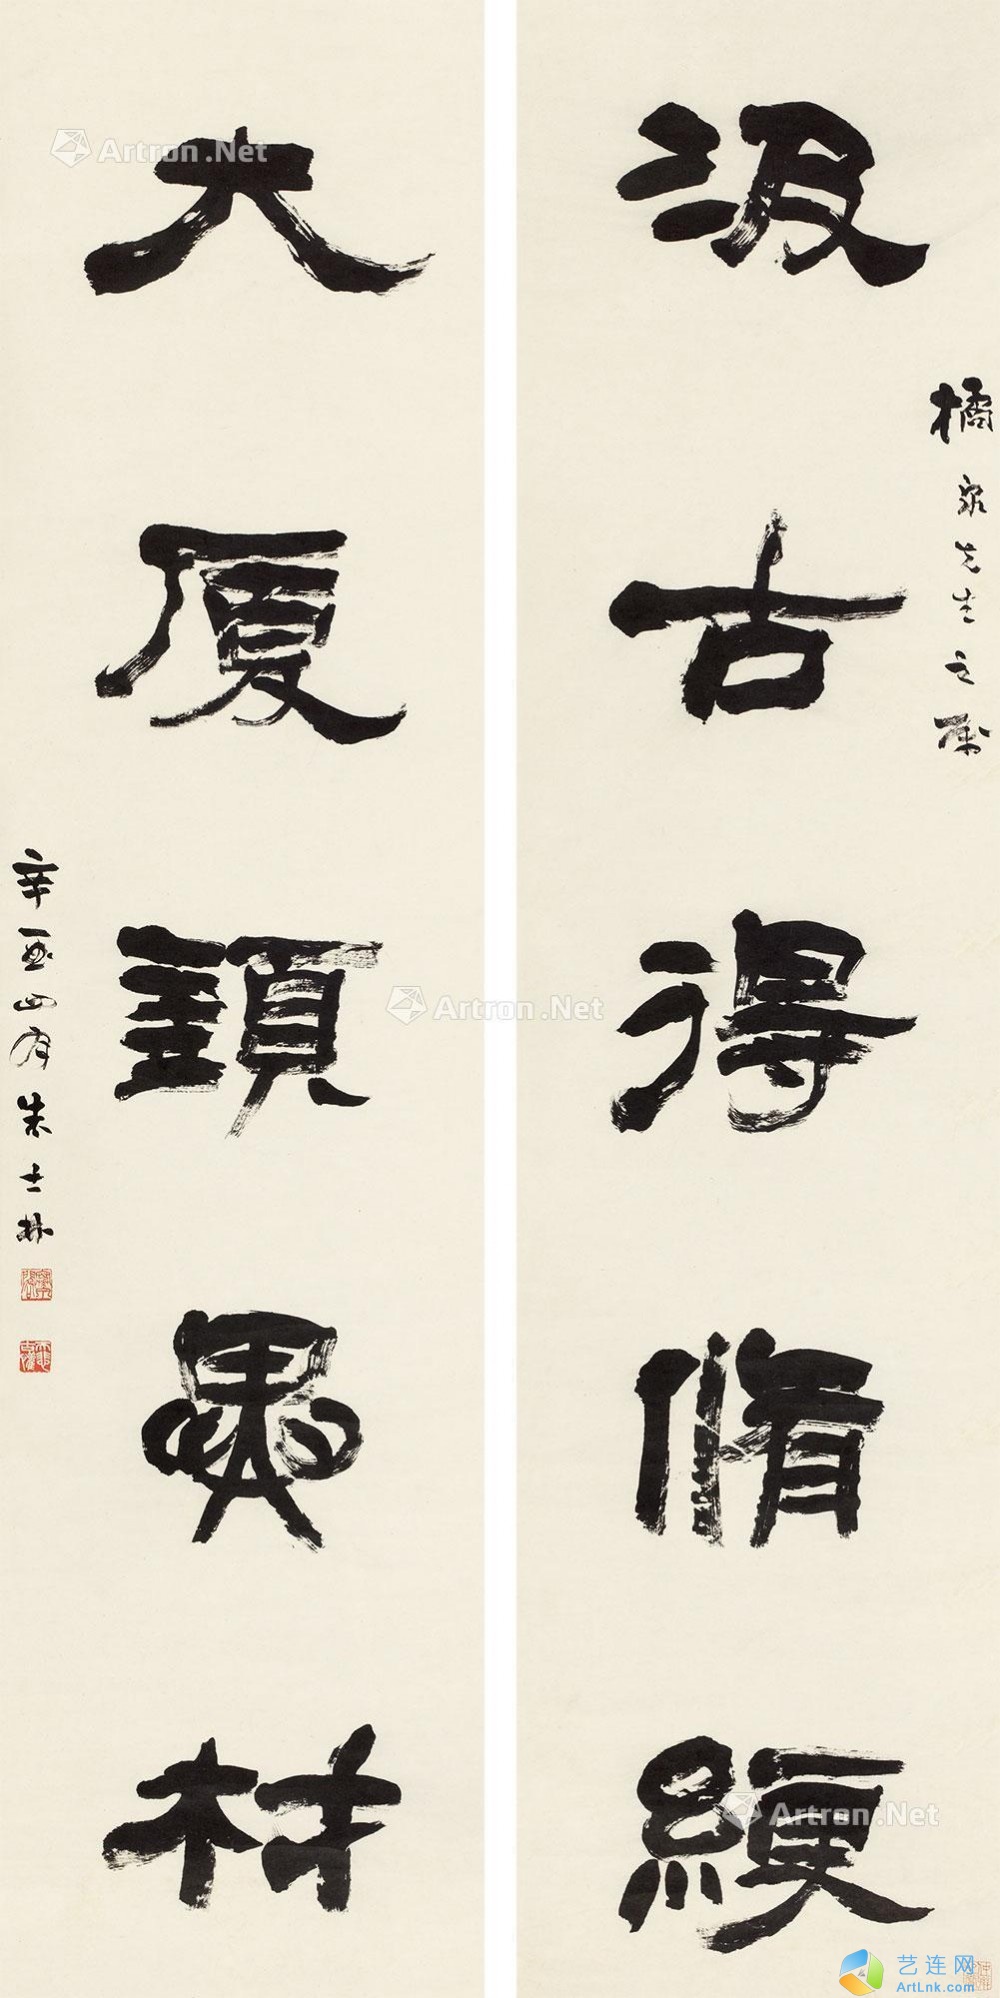 橘泉先生之屬
汲古得脩綆
大厦須異材
辛酉四月朱士林
Artron.Net
Artron.Net
Artron.Net
艺连网
ArtLnk.com